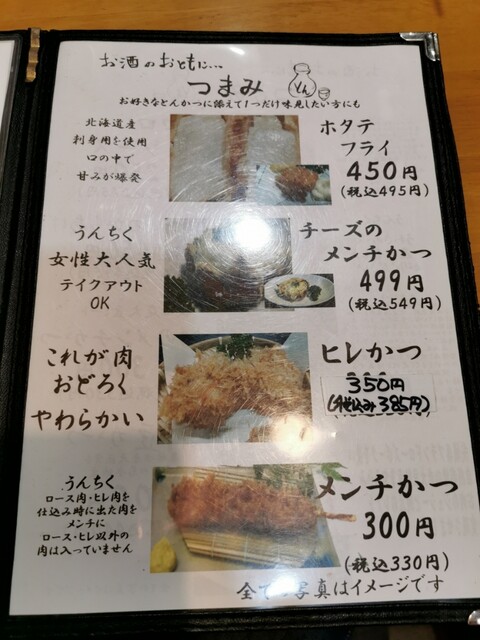 お酒のおともに…
つまみ
とん
お好きなとんかつに添えて1つだけ味見したい方にも
北海道産
刺身用を使用
口の中で
甘みが爆発
ホタテ
フライ
450円
(税込495円)
うんちく
女性大人気
テイクアウト
OK
チーズの
メンチかつ
499円
(税込549円)
これが肉
おどろく
やわらかい
ヒレかつ
350円
(税込み385円)
うんちく
ロース肉・ヒレ肉を
仕込み時に出た肉を
メンチに
ロース・ヒレ以外の
肉は入っていません
メンチかつ
300円
(税込330円)
全ての写真はイメージです